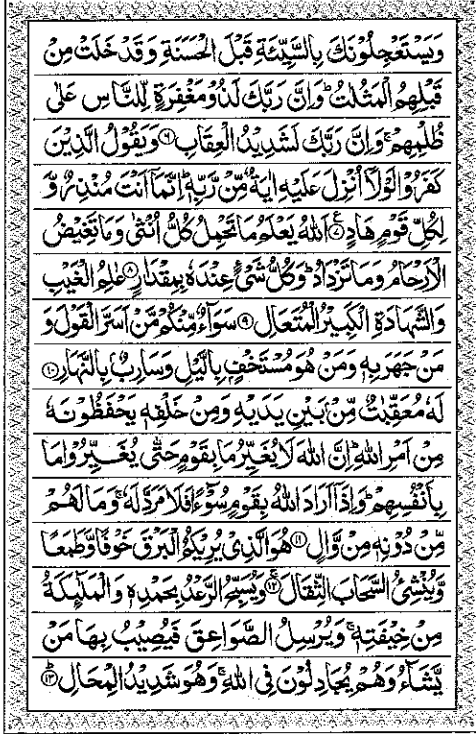 وَيَسْتَعْجِلُوْنَكَ بِالسَّيِّئَةِ قَبْلَ الْحَسَنَةِ وَقَدْ خَلَتْ مِنْ
قَبْلِهِمُ الْمَثُلٰتُ ؕ وَاِنَّ رَبَّكَ لَذُوْ مَغْفِرَةٍ لِّلنَّاسِ عَلٰى
ظُلْمِهِمْ ۚ وَاِنَّ رَبَّكَ لَشَدِيْدُ الْعِقَابِ ﴿۶﴾ وَيَقُوْلُ الَّذِيْنَ
كَفَرُوْا لَوْلَاۤ اُنْزِلَ عَلَيْهِ اٰيَةٌ مِّنْ رَّبِّهٖ ؕ اِنَّمَاۤ اَنْتَ مُنْذِرٌ وَّ
لِكُلِّ قَوْمٍ هَادٍ ﴿۷﴾ اَللّٰهُ يَعْلَمُ مَا تَحْمِلُ كُلُّ اُنْثٰى وَمَا تَغِيْضُ
الْاَرْحَامُ وَمَا تَزْدَادُ ؕ وَكُلُّ شَيْءٍ عِنْدَهٗ بِمِقْدَارٍ ﴿۸﴾ عٰلِمُ الْغَيْبِ
وَالشَّهَادَةِ الْكَبِيْرُ الْمُتَعَالِ ﴿۹﴾ سَوَآءٌ مِّنْكُمْ مَّنْ اَسَرَّ الْقَوْلَ وَ
مَنْ جَهَرَ بِهٖ وَمَنْ هُوَ مُسْتَخْفٍۭ بِالَّيْلِ وَسَارِبٌۢ بِالنَّهَارِ ﴿۱۰﴾
لَهٗ مُعَقِّبٰتٌ مِّنْۢ بَيْنِ يَدَيْهِ وَمِنْ خَلْفِهٖ يَحْفَظُوْنَهٗ
مِنْ اَمْرِ اللّٰهِ ؕ اِنَّ اللّٰهَ لَا يُغَيِّرُ مَا بِقَوْمٍ حَتّٰى يُغَيِّرُوْا مَا
بِاَنْفُسِهِمْ ؕ وَاِذَاۤ اَرَادَ اللّٰهُ بِقَوْمٍ سُوْٓءًا فَلَا مَرَدَّ لَهٗ ۚ وَمَا لَهُمْ
مِّنْ دُوْنِهٖ مِنْ وَّالٍ ﴿۱۱﴾ هُوَ الَّذِيْ يُرِيْكُمُ الْبَرْقَ خَوْفًا وَّطَمَعًا
وَّيُنْشِئُ السَّحَابَ الثِّقَالَ ﴿۱۲﴾ وَيُسَبِّحُ الرَّعْدُ بِحَمْدِهٖ وَالْمَلٰٓئِكَةُ
مِنْ خِيْفَتِهٖ ۚ وَيُرْسِلُ الصَّوَاعِقَ فَيُصِيْبُ بِهَا مَنْ
يَّشَآءُ وَهُمْ يُجَادِلُوْنَ فِى اللّٰهِ ۚ وَهُوَ شَدِيْدُ الْمِحَالِ ﴿۱۳﴾